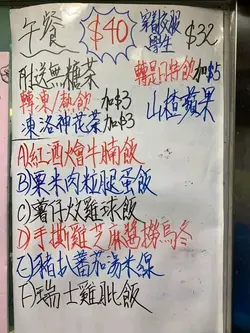 午餐 $40 穿着校服學生 $32
附送無糖茶
轉凍/熱飲 加$3 轉是日特飲 加$5
凍洛神花茶 加$3 山楂蘋果
A)紅酒燴牛腩飯
B)粟米肉粒腿蛋飯
C)薯仔炆雞球飯
D)手撕雞芝麻醬撈烏冬
E)豬扒蕃茄湯米線
F)瑞士雞髀飯